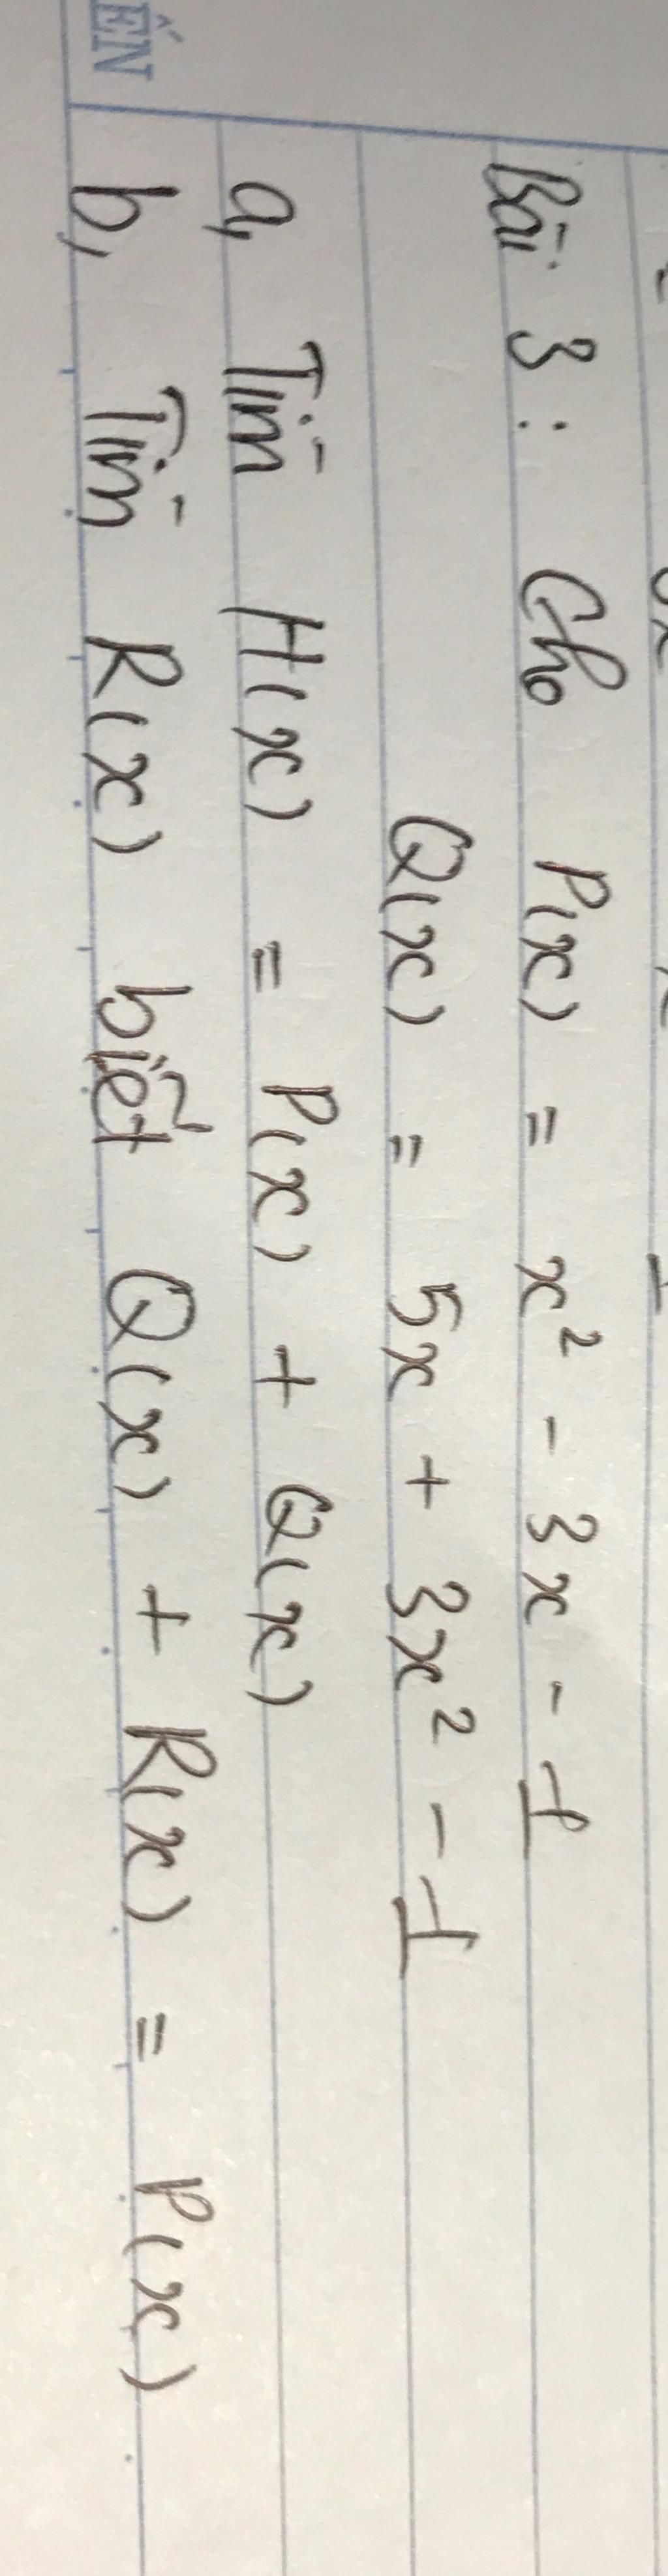 Bài 3 : Cho P(x) = x² - 3x - 1
Q(x) = 5x + 3x² - 1
a, Tìm H(x) = P(x) + Q(x)
b, Tìm R(x) biết Q(x) + R(x) = P(x)
ẾN